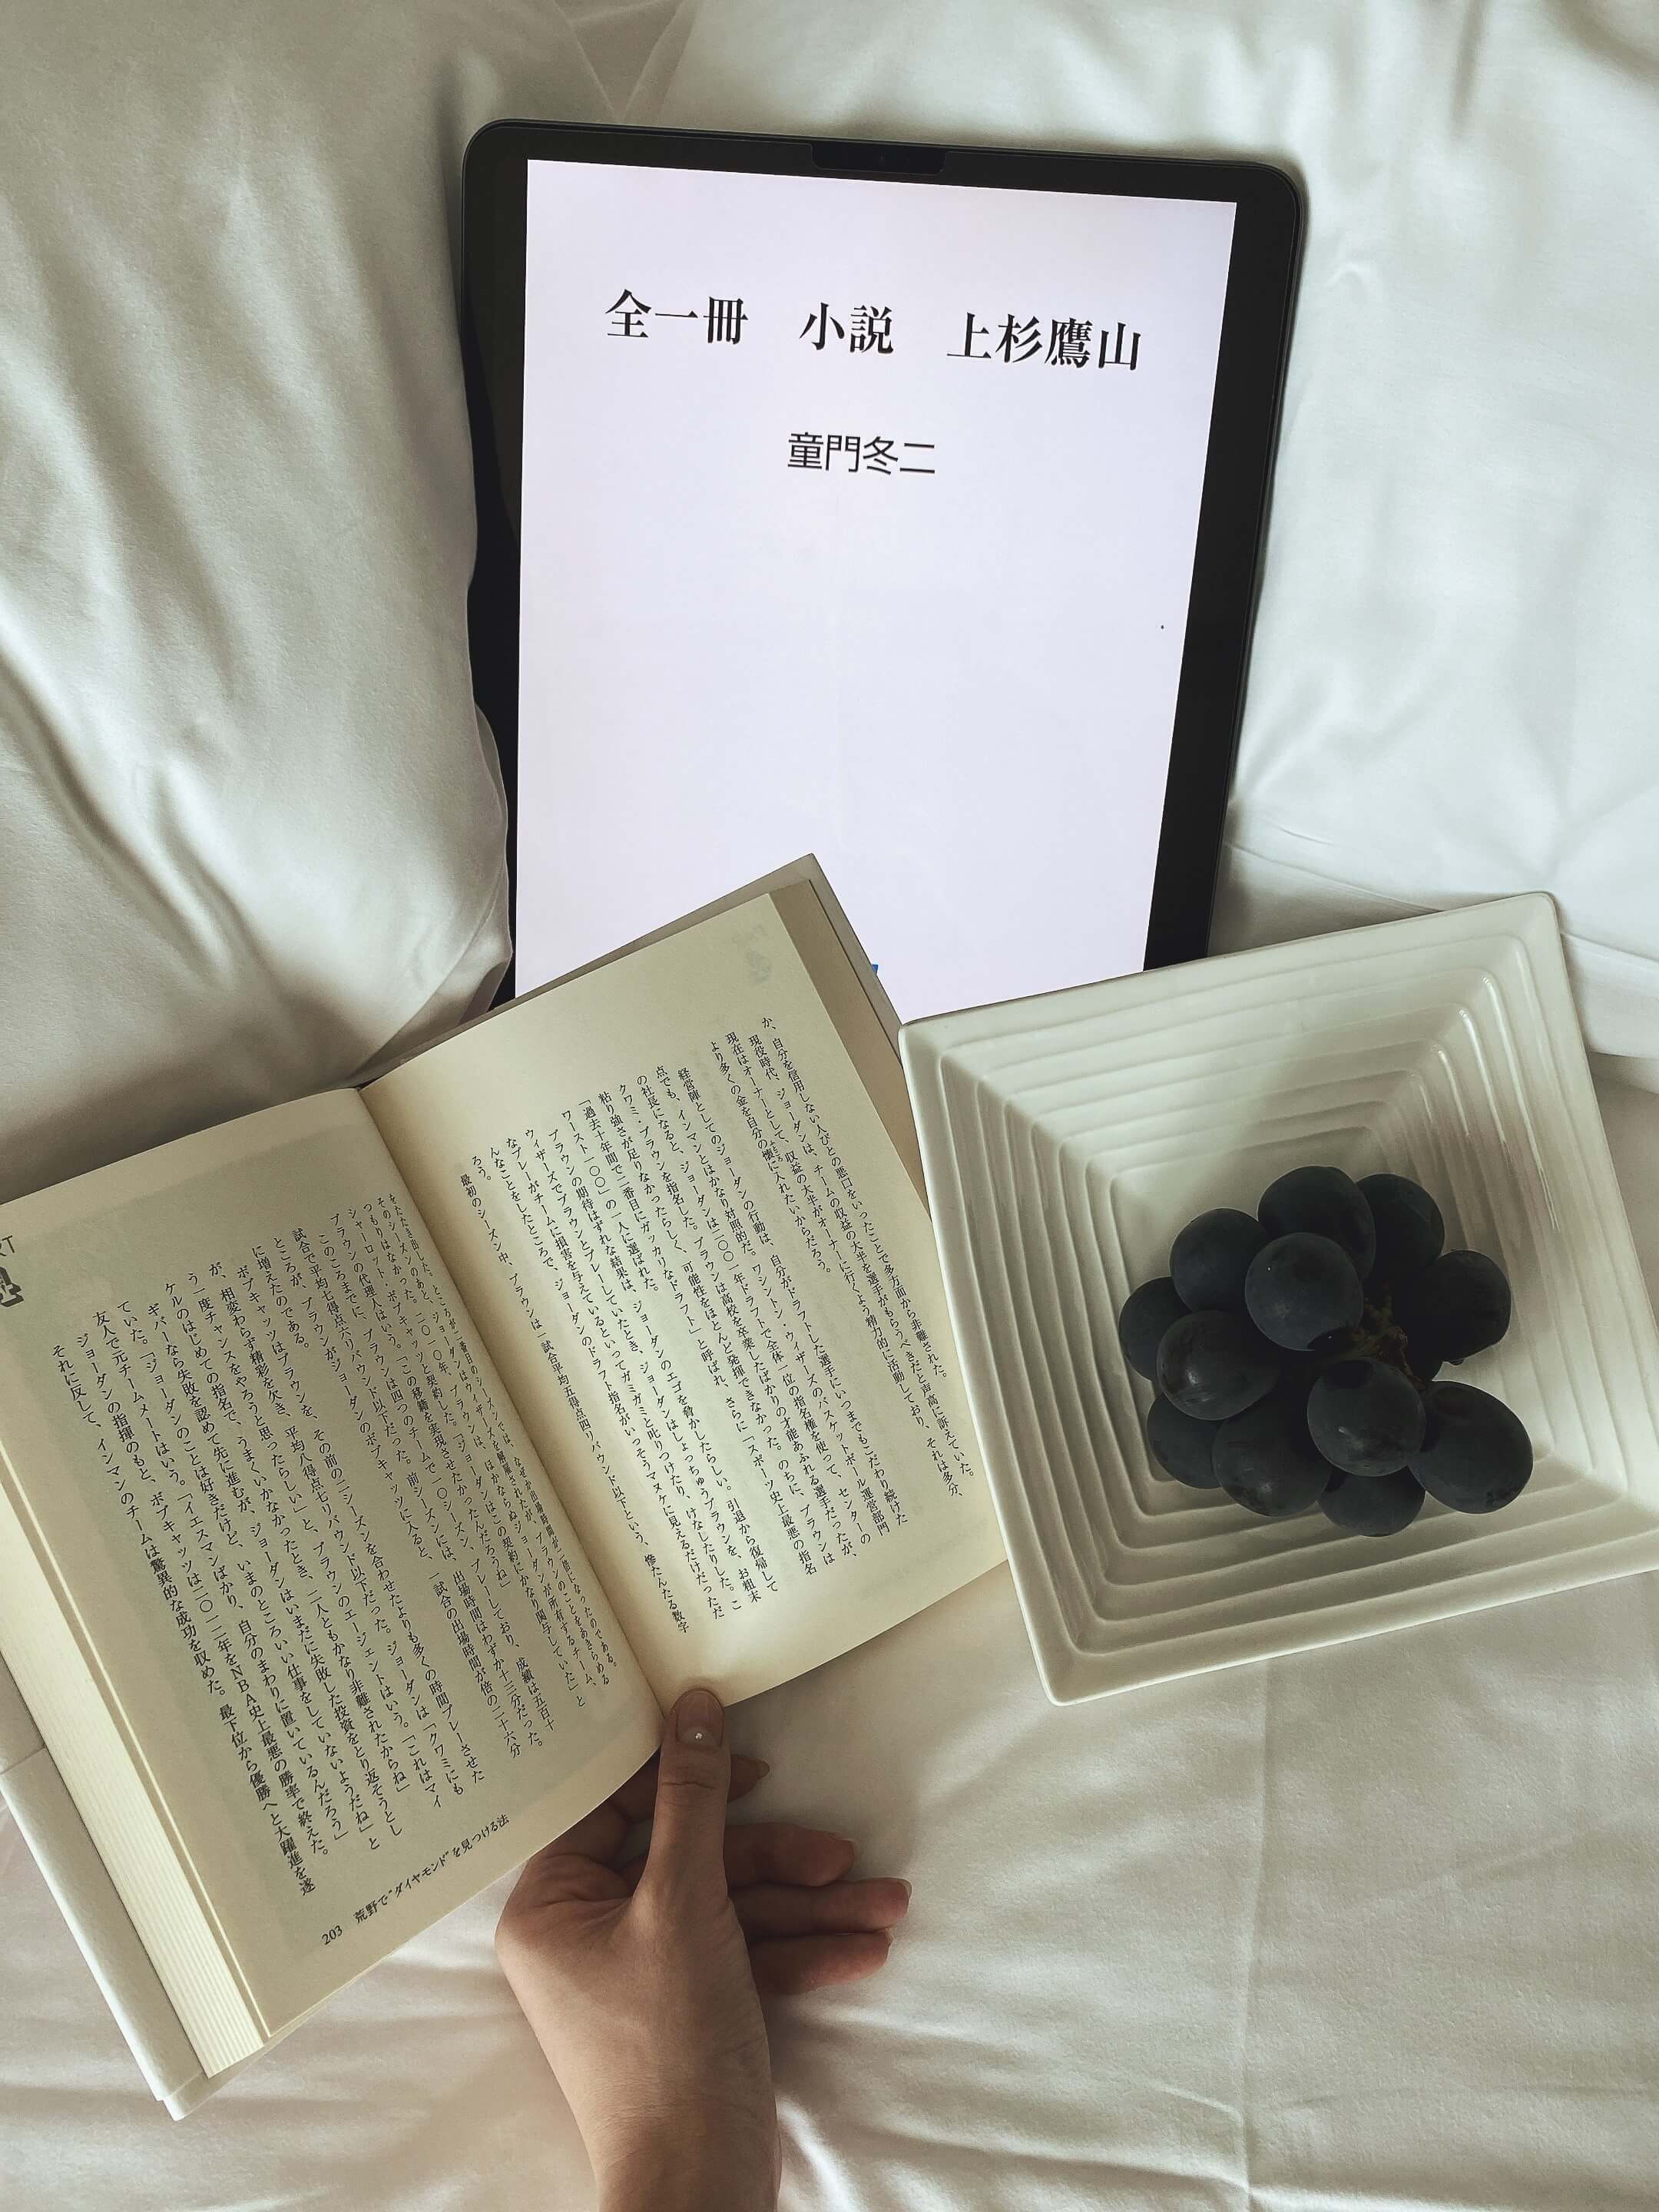 全一冊　小説　上杉鷹山
童門冬二
か、自分を信用しない人びとの悪口をいったことで多方面から非難された。
現役時代、ジョーダンは、チームの収益の大半を選手がもらうべきだと声高に訴えていた。
現在はオーナーとして、収益の大半がオーナーに行くよう精力的に活動しており、それは多分、
より多くの金を自分の懐に入れたいからだろう。
経営陣としてのジョーダンの行動は、自分がドラフトした選手にいつまでもこだわり続けた
点でも、インマンとはかなり対照的だ。ワシントン・ウィザーズのバスケットボール運営部門
の社長になると、ジョーダンは二〇〇一年ドラフトで全体一位の指名権を使って、センターの
クワミ・ブラウンを指名した。ブラウンは高校を卒業したばかりの才能あふれる選手だったが、
粘り強さが足りなかったらしく、可能性をほとんど発揮できなかった。のちに、ブラウンは
「過去十年間で二番目にガッカリなドラフト」と呼ばれ、さらに「スポーツ史上最悪の指名
ワースト一〇〇」の一人に選ばれた。
ブラウンの期待はずれな結果は、ジョーダンのエゴを脅かしたらしい。引退から復帰して
ウィザーズでブラウンとプレーしていたとき、ジョーダンはしょっちゅうブラウンを、お粗末
なプレーがチームに損害を与えているといってガミガミと叱りつけたり、けなしたりした。こ
んなことをしたところで、ジョーダンのドラフト指名がいっそうマヌケに見えるだけだっただ
ろう。
最初のシーズン中、ブラウンは一試合平均五得点四リバウンド以下という、惨たんたる数字
をたたき出した。ところが二番目のシーズンでは、なぜか出場時間が二倍になったのである。
そのシーズンのあと、ジョーダンはウィザーズを解雇されたが、ブラウンのことをあきらめる
つもりはなかった。二〇一〇年、ブラウンは、ほかならぬジョーダンが所有するチーム、
シャーロット・ボブキャッツと契約した。「ジョーダンはこの契約にかなり関与していた」と
ブラウンの代理人はいう。「この移籍を実現させたかったんだろうね」
このころまでに、ブラウンは四つのチームで一〇シーズン、プレーしており、成績は五百十
試合で平均七得点六リバウンド以下だった。前シーズンには、出場時間はわずか十三分だった。
ところが、ブラウンがジョーダンのボブキャッツに入ると、一試合の出場時間が倍の二十六分
に増えたのである。
ボブキャッツはブラウンを、その前の二シーズンを合わせたよりも多くの時間プレーさせた
が、相変わらず精彩を欠き、平均八得点七リバウンド以下だった。ジョーダンは「クワミにも
う一度チャンスをやろうと思ったらしい」と、ブラウンのエージェントはいう。「これはマイ
ケルのはじめての指名で、うまくいかなかったとき、二人ともかなり非難されたからね」
ギバーなら失敗を認めて先に進むが、ジョーダンはいまだに失敗した投資をとり返そうとし
ていた。「ジョーダンのことは好きだけど、いまのところいい仕事をしていないようだね」と
友人で元チームメートはいう。「イエスマンばかり、自分のまわりに置いているんだろう」
ジョーダンの指揮のもと、ボブキャッツは二〇一二年をNBA史上最悪の勝率で終えた。
それに反して、インマンのチームは驚異的な成功を収めた。最下位から優勝へと大躍進を遂
203　荒野で“ダイヤモンド”を見つける法